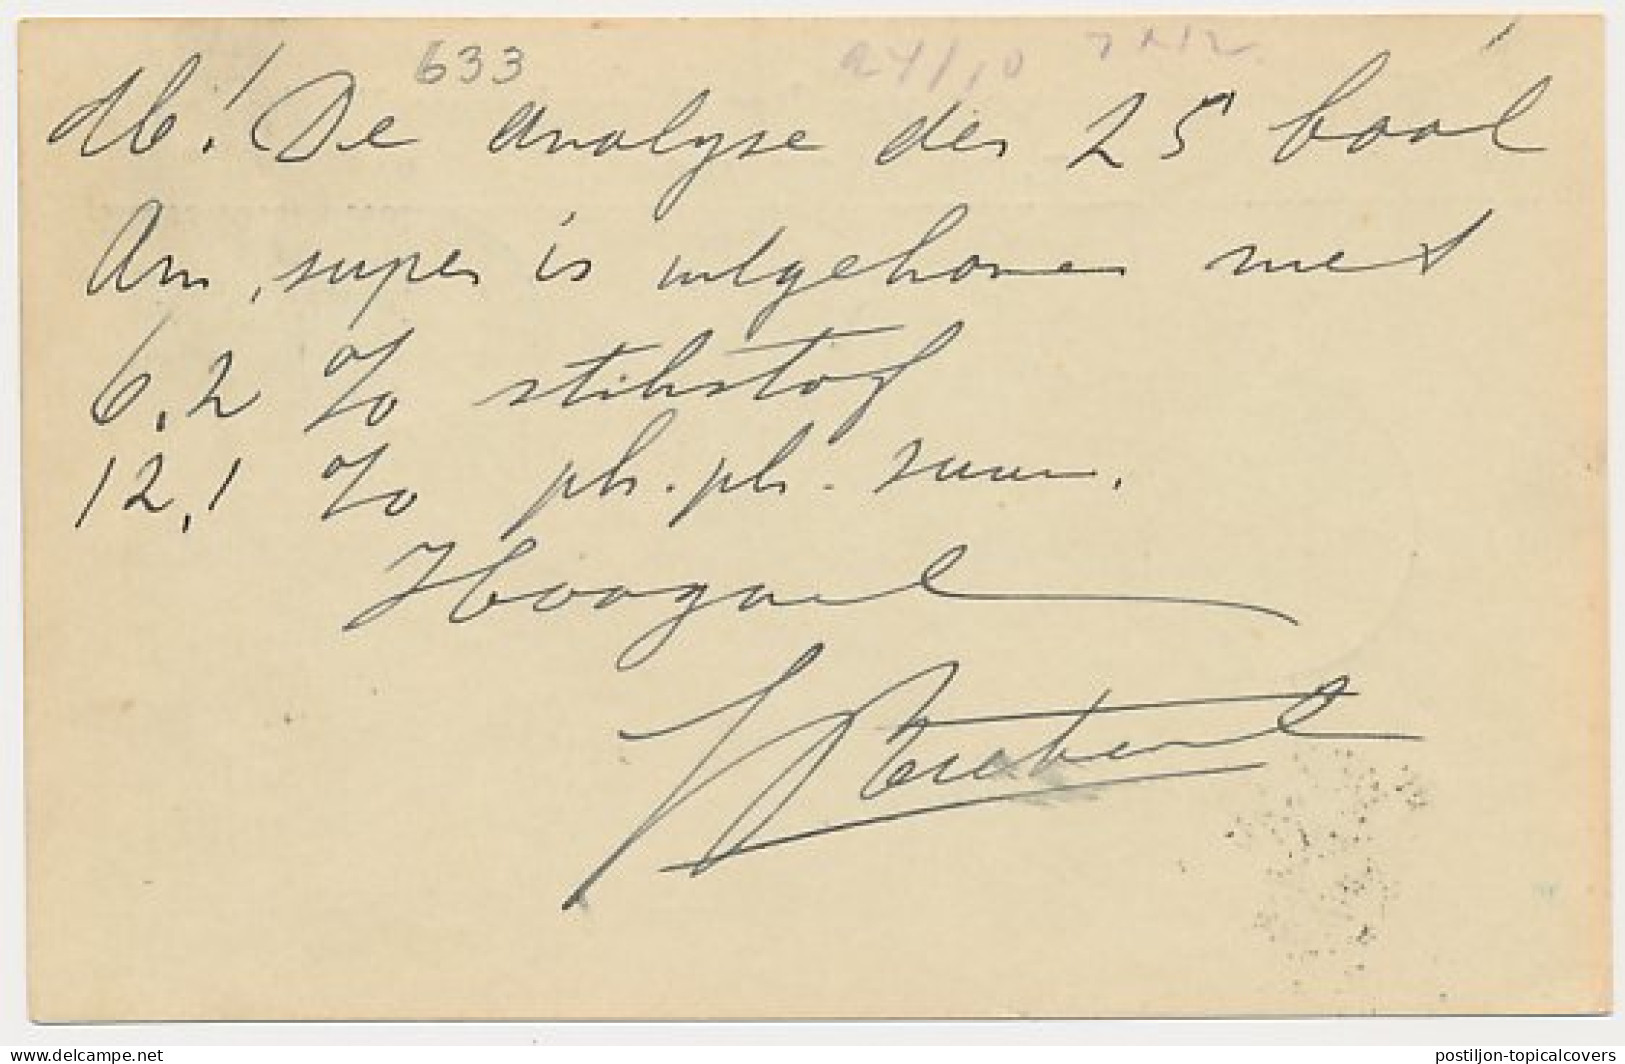 633
M! De analyse der 25 baal
Am. super is uitgekomen met
6,2 % stikstof
12,1 % ph. ph. zuur.
Hoogend
www.delcampe.net
postiljon-topicalcovers